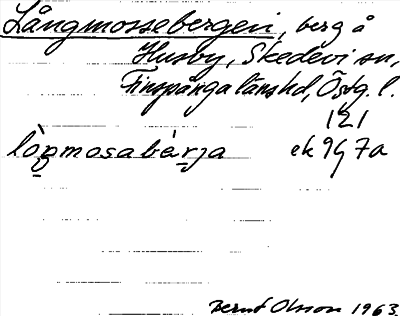 Långmossebergen, berg å
Husby, Skedevi sn,
Finspånga länshd, Östg. l.
121
lòŋmosabæ̀rja ek 9G 7a
Bernt Olsson 1963.